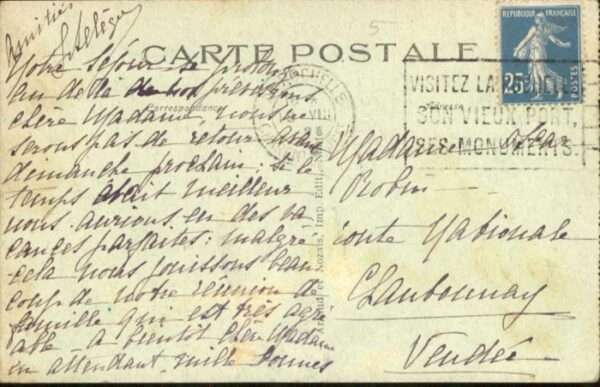 Amitiés
CARTE POSTALE
Correspondance
Notre séjour se prolonge
au delà de nos prévisions
chère Madame, nous ne
serons pas de retour avant
dimanche prochain : si le
temps était meilleur
nous aurions eu des va
cances parfaites : malgré
cela nous jouissons beau
coup de notre réunion de
famille qui est très agré
able – à bientôt chère Madame
en attendant, mille bonnes
5
REPUBLIQUE FRANÇAISE
25c
POSTES
VISITEZ LA
SON VIEUX PORT,
SES MONUMENTS.
Nozais, Imp. Edit.,
Madame
Robin
route Nationale
Chantonnay
Vendée